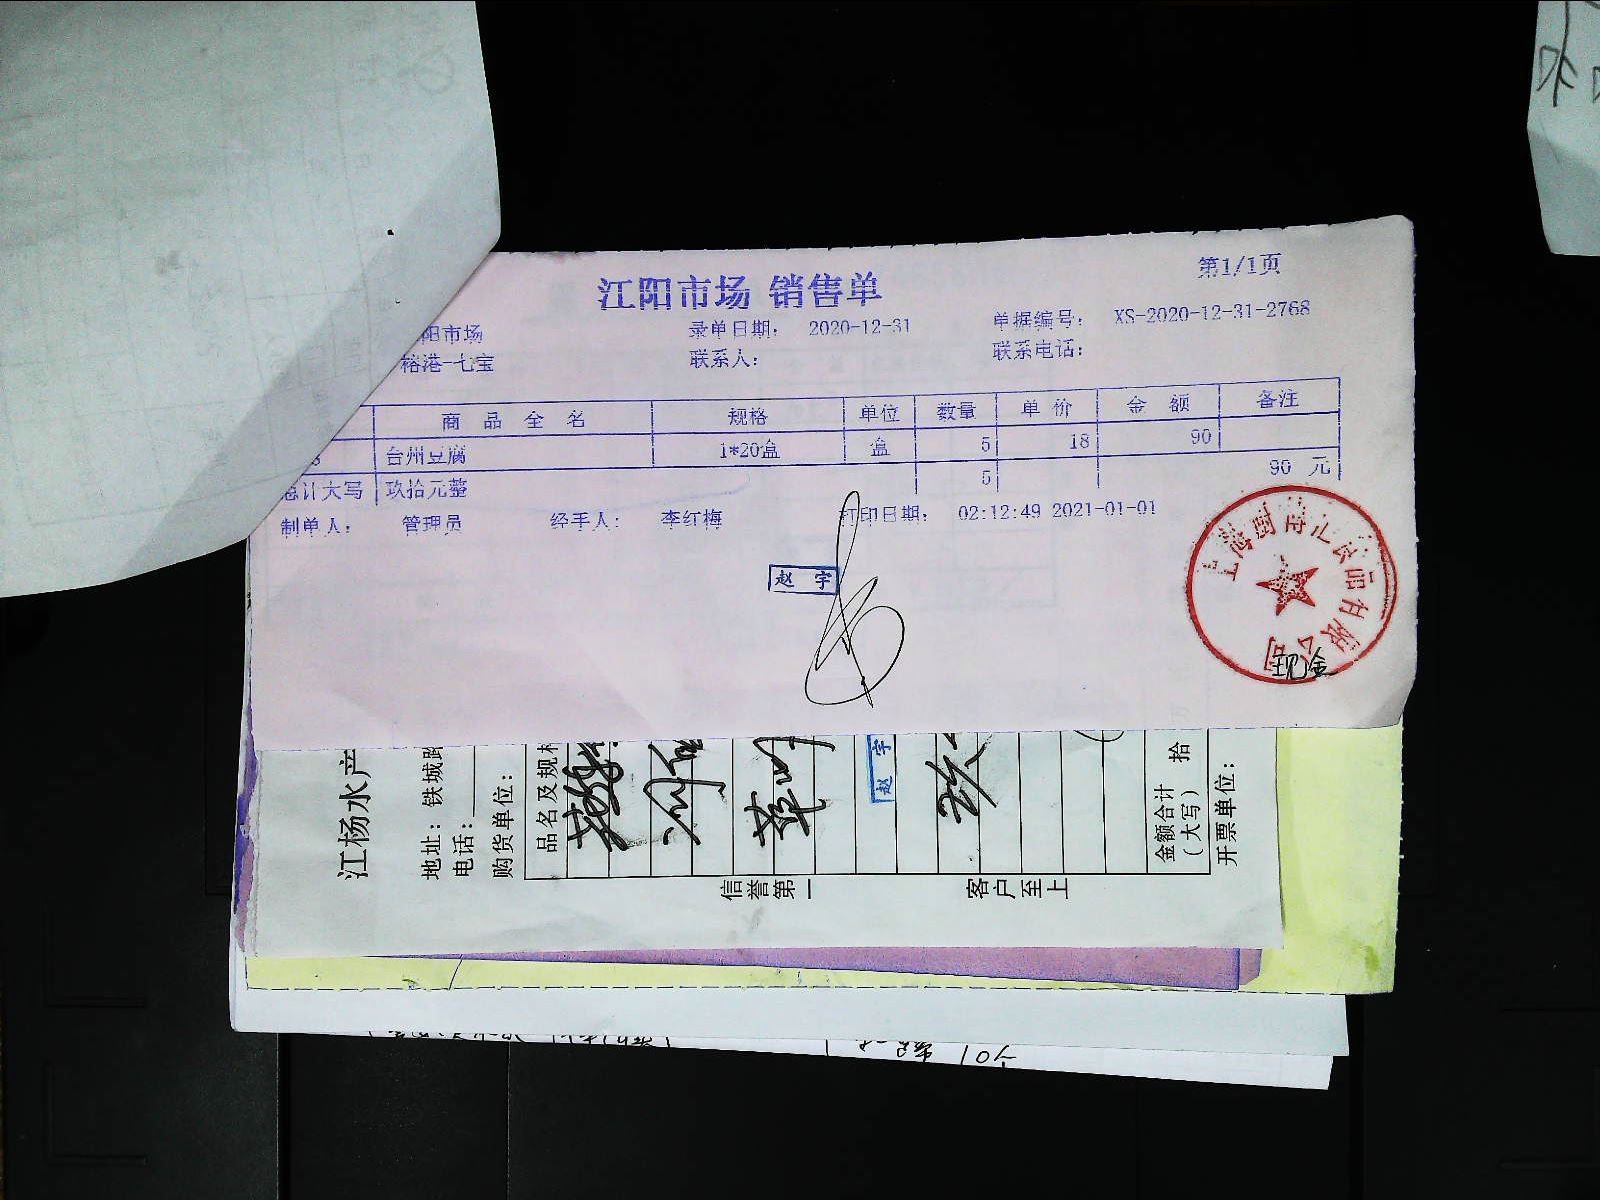 第1/1页
江阳市场 销售单
阳市场 录单日期： 2020-12-31 单据编号： XS-2020-12-31-2768
裕港-七宝 联系人： 联系电话：
商品全名 规格 单位 数量 单价 金额 备注
台州豆腐 1*20盒 盒 5 18 90
总计大写 玖拾元整 5 90 元
制单人： 管理员 经手人： 李红梅 打印日期： 02:12:49 2021-01-01
赵宇
有限公司
现金
江杨水产
地址：铁城路
电话：
购货单位：
品名及规格
赵宇
金额合计（大写） 拾
开票单位：
信誉第一
客户至上